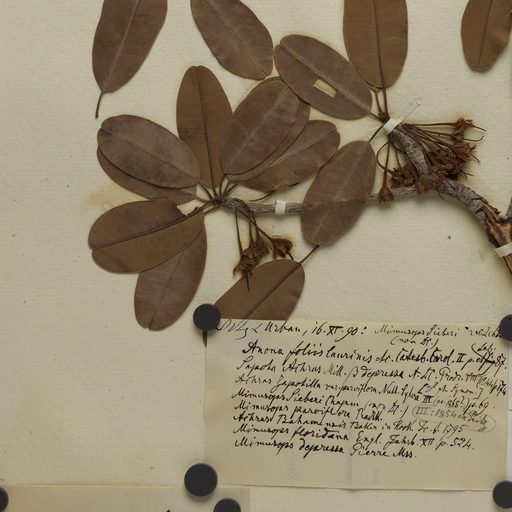 Urban, 16. XI. 90: Mimusops Sieberi
(non DC.)
Anona foliis laurinis etc. Catesb. Carol. II p. 87.
Sapota Achras Mill. β depressa A. DC. Prodr. VIII p. 174
Achras Zapotilla var. parviflora Nutt. Sylva III
Mimusops Sieberi Chapm. (non DC.)
Mimusops parviflora Radlk.
Achras Bahamensis Baker in Hook. Ic. t. 1795
Mimusops floridana Engl. Jahrb. XII p. 524.
Mimusops depressa Pierre Mss.